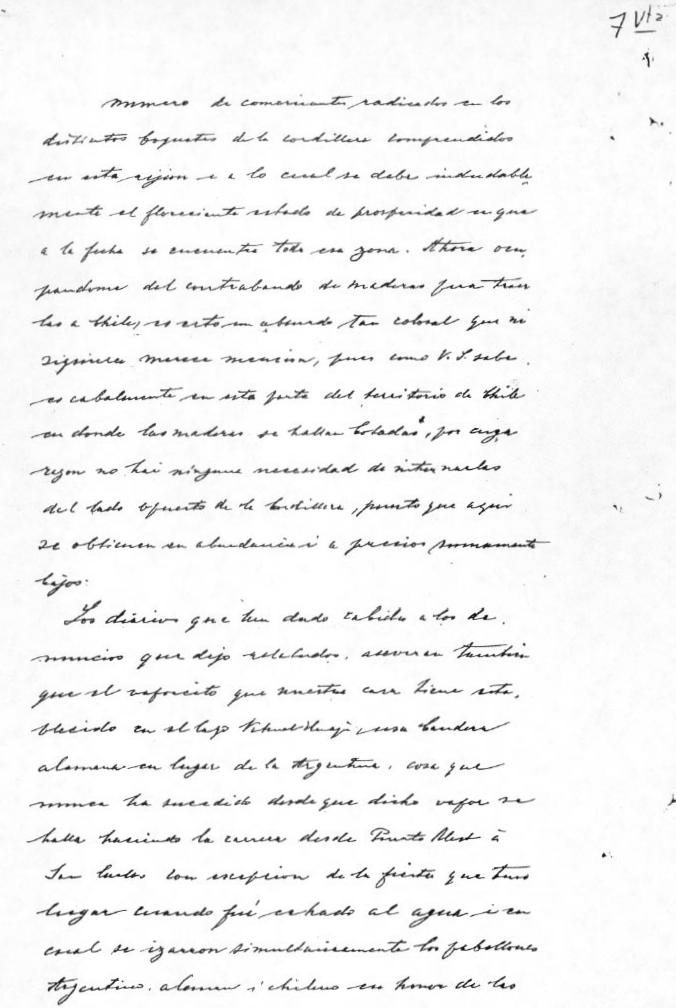 7 Vta
numero de comerciantes radicados en los
distintos boquetes de la cordillera comprendidos
en esta rejion i a lo cual se debe indudable
mente el floreciente estado de prosperidad en que
a la fecha se encuentra toda esa zona. Ahora ocu
pandome del contrabando de maderas para traer
las a Chile, es esto un absurdo tan colosal que ni
siquiera merece mencion, pues como V. S. sabe
es cabalmente en esta parte del territorio de Chile
en donde las maderas se hallan botadas, por cuya
razon no hai ninguna necesidad de internarlas
del lado opuesto de la Cordillera, puesto que aqui
se obtienen en abundancia i a precios sumamente
bajos.
Los diarios que han dado cabida a los de
nuncios que dejo relatados, aseveran tambien
que el vaporcito que nuestra casa tiene esta,
blecido en el lago Nahuel Huapi, usa bandera
alemana en lugar de la Argentina, cosa que
nunca ha sucedido desde que dicho vapor se
halla haciendo la carrera desde Puerto Blest á
San Carlos con excepcion de la fiesta que tuvo
lugar cuando fué echado al agua i en
cual se izarron simultaneamente los pabellones
Argentino, aleman i chileno en honor de las